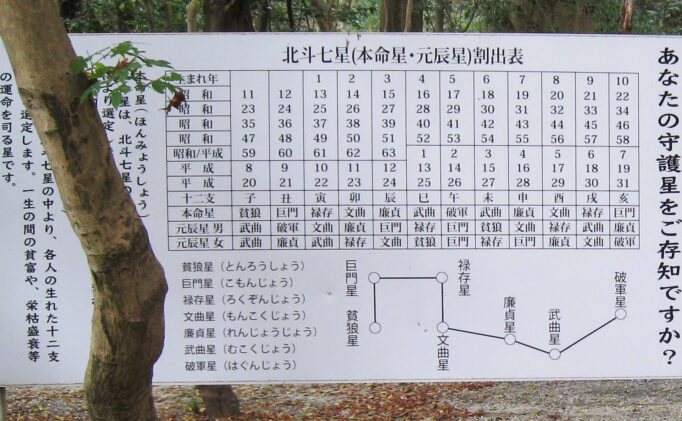 あなたの守護星をご存知ですか？
北斗七星(本命星・元辰星)割出表
生まれ年 1 2 3 4 5 6 7 8 9 10
昭 和 11 12 13 14 15 16 17 18 19 20 21 22
昭 和 23 24 25 26 27 28 29 30 31 32 33 34
昭 和 35 36 37 38 39 40 41 42 43 44 45 46
昭 和 47 48 49 50 51 52 53 54 55 56 57 58
昭和/平成 59 60 61 62 63 1 2 3 4 5 6 7
平 成 8 9 10 11 12 13 14 15 16 17 18 19
平 成 20 21 22 23 24 25 26 27 28 29 30 31
十二支 子 丑 寅 卯 辰 巳 午 未 申 酉 戌 亥
本命星 貪狼 巨門 禄存 文曲 廉貞 武曲 破軍 武曲 廉貞 文曲 禄存 巨門
元辰星 男 武曲 破軍 文曲 廉貞 巨門 禄存 巨門 貪狼 文曲 禄存 武曲 廉貞
元辰星 女 武曲 廉貞 武曲 禄存 文曲 貪狼 巨門 禄存 巨門 廉貞 文曲 破軍
貪狼星（とんろうしょう）
巨門星（こもんじょう）
禄存星（ろくぞんじょう）
文曲星（もんこくじょう）
廉貞星（れんじょうじょう）
武曲星（むこくじょう）
破軍星（はぐんじょう）
巨門星
禄存星
破軍星
貪狼星
文曲星
廉貞星
武曲星
本命星（ほんみょうしょう）
星は、北斗七星の
より選定し
七星の中より、各人の生れた十二支
選定します。一生の間の貧富や、栄枯盛衰等
の運命を司る星です。